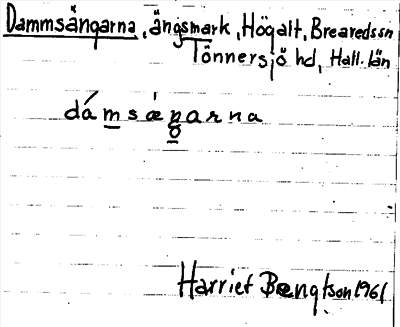 Dammsängarna, ängsmark, Högalt, Breavedssn
Tönnersjö hd, Hall. län
dámsæŋarna
Harriet Bengtson 1961